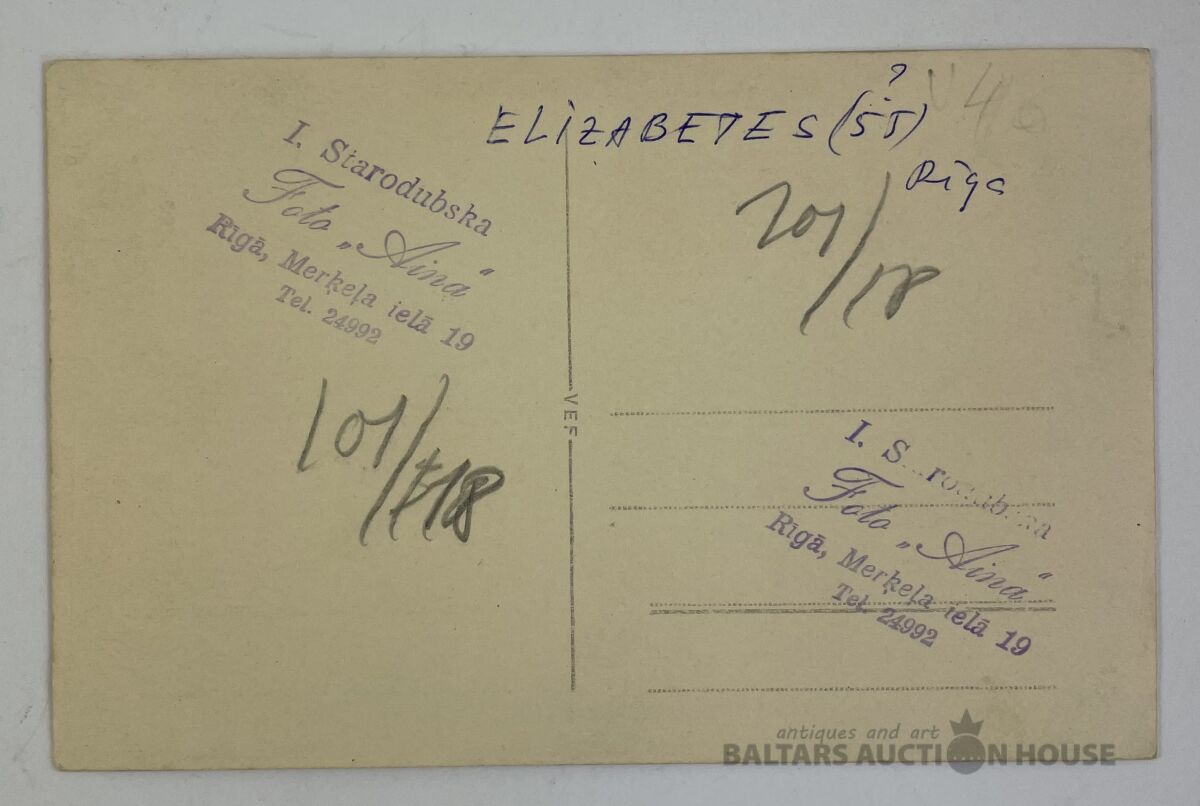 ?
ELIZABETES (55)
Rīga
I. Starodubska
Foto „Aina”
Rīgā, Merķeļa ielā 19
Tel. 24992
101/18
101/18
VEF
I. S rodubska
Foto „Aina”
Rīgā, Merķeļa ielā 19
Tel. 24992
antiques and art
BALTARS AUCTION HOUSE